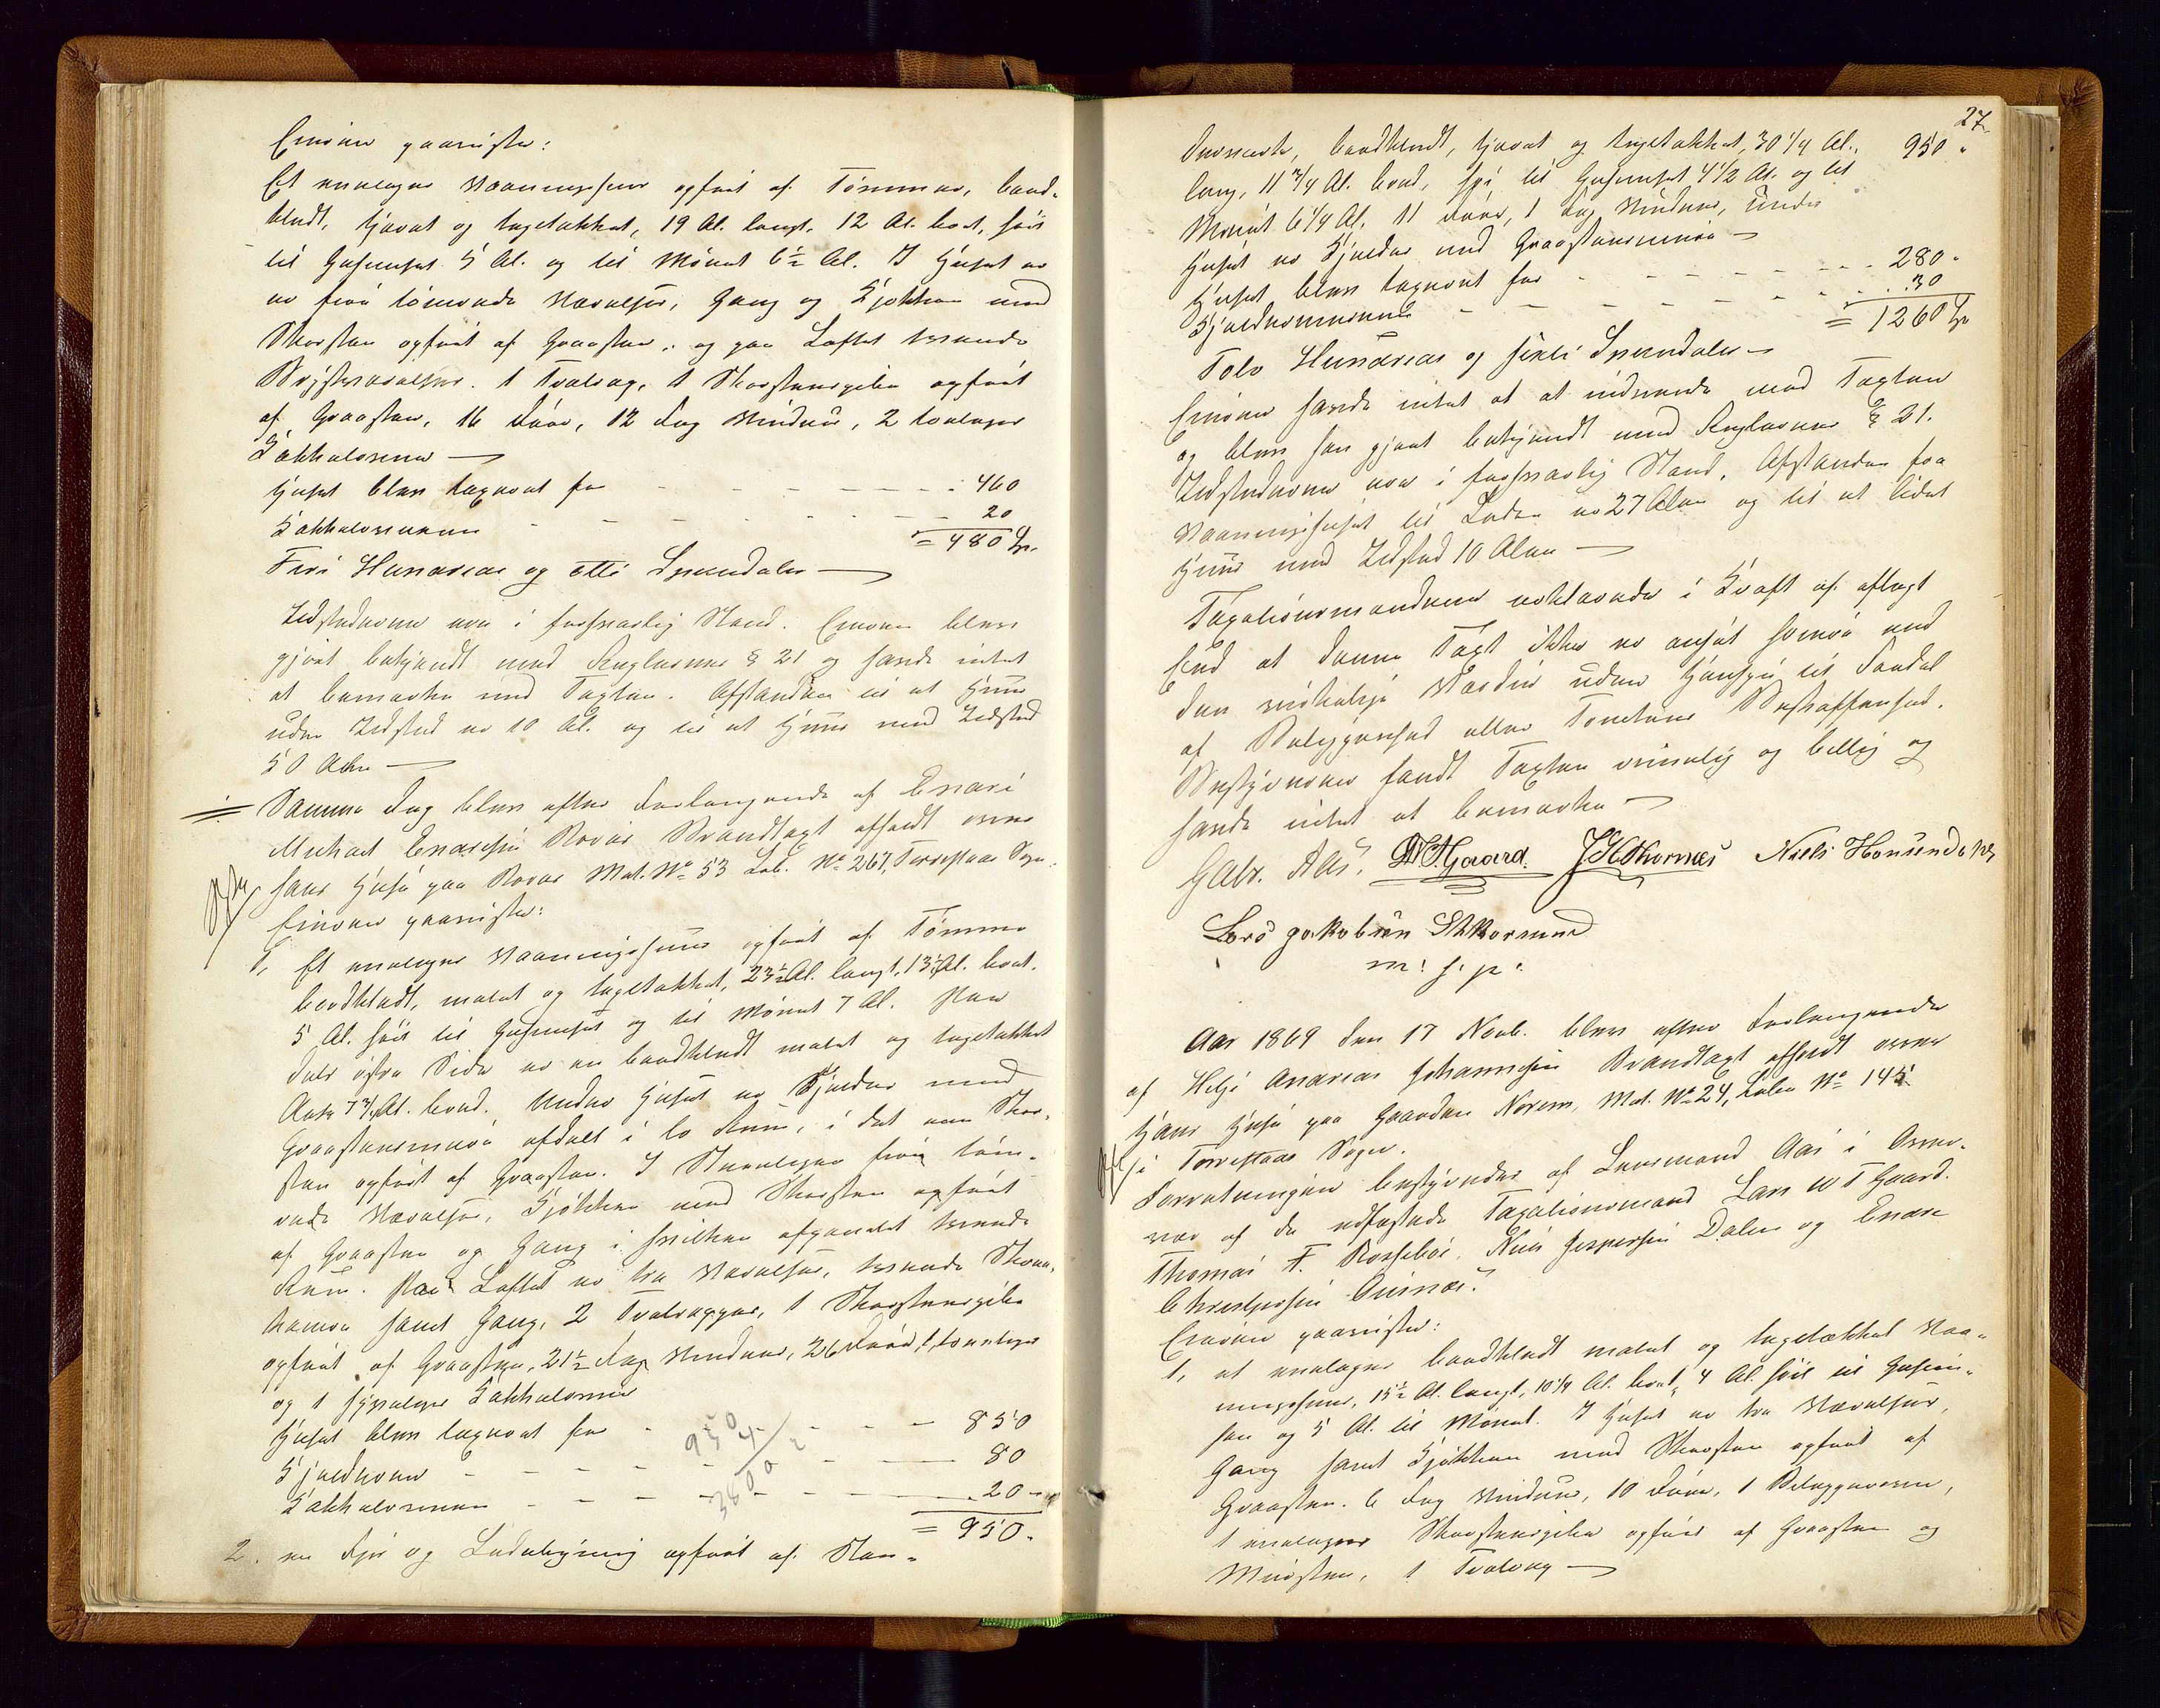 Eieren paaviste:
Et enetages Vaaningshuus opført af Tømmer, bord-
klædt, tjæret og tagetækket, 19 Al. langt, 12 Al. bredt, høit
til Gesimset 5 Al. og til Mønet 6½ Al. I Huset er
er fire tømrede Værelser, Gang og Kjøkken med
Skorsten opført af Graasten, og paa Loftet tvende
Qvistværelser. 1 Trætrap, 1 Skorstenspibe opført
af Graasten, 16 Døre, 12 Fag Vinduer, 2 toetages
Kakkelovne
Huset blev taxeret for - - - - 460
Kakkelovnene - - - - 20
= 480 Sp.
Fire Hundrede og otti Speciedaler
Ildstederne var i forsvarlig Stand. Eieren blev
gjort bekjendt med Reglernes § 21 og havde intet
at bemærke med Taxten. Afstanden til et Huus
uden Ildsted er 10 Al. og til et Huus med Ildsted
50 Alen
Samme Dag blev efter Forlangende af Enari
Michael Enaresen Rovær Brandtaxt afholdt over
hans Huse paa Rovær Mat. No 53 Løb. No 267, Torvestad Sogn.
Eieren paaviste:
1, Et enetages Vaaningshuus opført af Tømmer
bordklædt, malet og tagetækket, 23½ Al. langt, 13½ Al. bredt,
5 Al. høit til Gesimset og til Mønet 7 Al. Paa
dets østre Side er en bordklædt malet og tagetækket
7¾ Al. bred. Under Huset er Kjælder med
Graastensmure afdelt i to Rum, i det ene Skor-
sten opført af Graasten. I Stueetagen fire tøm-
rede Værelser, Kjøkken med Skorsten opført
af Graasten og Gang i hvilken afpanelet tvende
Rum. Paa Loftet er tre Værelser, tvende
kamre samt Gang, 2 Trætrapper, 1 Skorstenspibe
opført af Graasten, 21½ Fag Vinduer, 26 Døre, 1 toetages
og 1 Kakkelovne
Huset blev taxeret for - - - - 850
Kjælderen - - - - 80
Kakkelovnene - - - - 20
= 950.
950
4
3800
2. en Fjøs og Ladebygning opført af Stav-
27.
950.
bordklædt, tjæret og tagetækket, 30 1/4 Al.
lang, 11 3/4 Al. bred, høi til Gesimset 4 1/2 Al. og til
Mønet 6 1/4 Al. 11 Døre, 1 Fag Vinduer, Under
Huset er Kjælder med Graastensmure
Huset blev taxeret for - - - - 280.
Kjældermurene - - - - 30
= 1260 Sp
Tolv Hundrede og sexti Speciedaler
Eieren havde intet at at indvende mod Taxten
og blev han gjort bekjendt med Reglernes § 21.
Ildstederne var i forsvarlig Stand. Afstanden fra
Vaaningshuset til Laden er 27 Alen og til et lidet
Huus med Ildsted 10 Alen
Taxationsmændene erklærede i Kraft af aflagt
Eed at denne Taxt ikke er ansat høiere end
den virkelige Værdie uden Hensyn til Fordel
af Beliggenhed eller Tomtens Beskaffenhed.
Bestyreren fandt Taxten rimelig og billig og
havde intet at bemærke
GAbr. Aas. LWTGaard. JHThornæs Niels
Lars Jakobsen
m. f. p.
Aar 1869 den 17 Novb. blev efter Forlangende
af Helje Andreas Johannesen Brandtaxt afholdt over
hans Huse paa Gaarden Norem, Mat. No 24, Løbe No 145
i Torvestad Sogn.
Forretningen bestyredes af Lensmand Aas i Over-
vær af de udfæstede Taxationsmænd Lars W T Gaard.
Thomas T. Rossebøe, Niels Jespersen Dalen og Enare
Christophersen
Eieren paaviste:
1, et enetages bordklædt malet og tagetækket Vaa-
ningshuus, 15½ Al. langt, 10 1/4 Al. bredt, 4 Al. høit til Gesim-
sen og 5 Al. til Mønet. I Huset er tre Værelser,
Gang samt Kjøkken med Skorsten opført af
Graasten. 6 Fag Vinduer, 10 Døre, 1 Bilæggerovn,
1 enetages Skorstenspibe opført af Graasten og
Muursten, 1 Trætrap